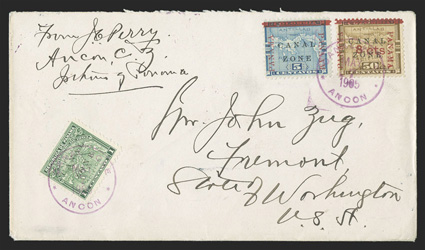 From J. C. Perry
Ancon, C. Z.
Isthmus of Panama
CANAL
ZONE
5
CANAL
8 cts
PANAMA
50
1905
ANCON
Mr. John Zug,
Fremont,
State of Washington
U. S. A.
ANCON